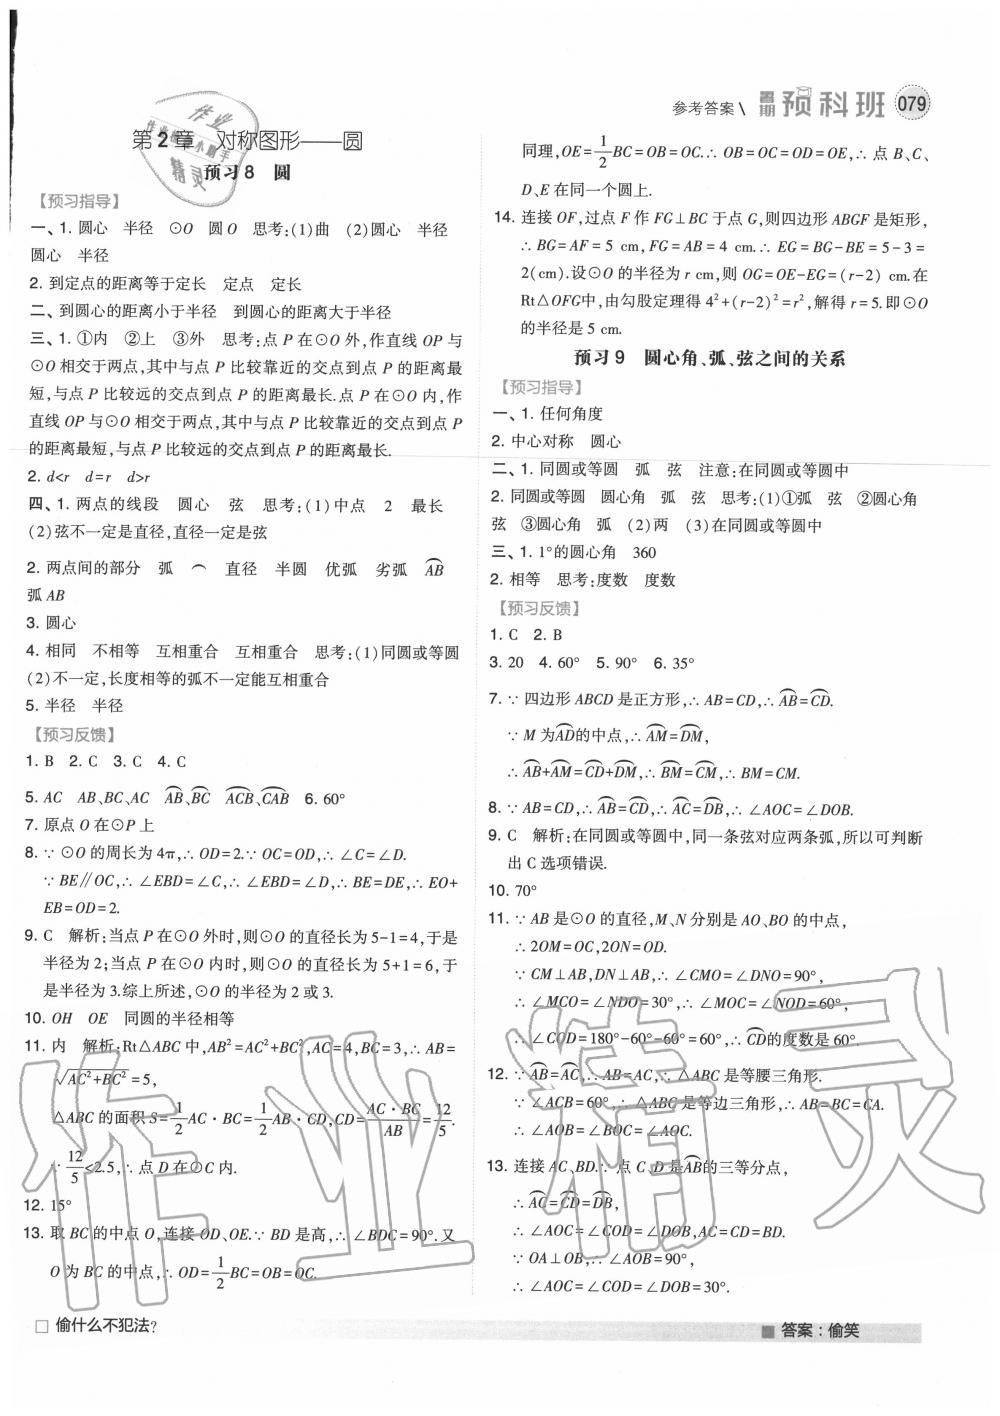 参考答案\ 暑期预科班 079
第2章 对称图形——圆
预习8 圆
【预习指导】
一、1. 圆心 半径 ⊙O 圆O 思考:(1)曲 (2)圆心 半径
圆心 半径
2. 到定点的距离等于定长 定点 定长
二、到圆心的距离小于半径 到圆心的距离大于半径
三、1. ①内 ②上 ③外 思考:点P在⊙O外,作直线OP与
⊙O相交于两点,其中与点P比较靠近的交点到点P的距离最
短,与点P比较远的交点到点P的距离最长.点P在⊙O内,作
直线OP与⊙O相交于两点,其中与点P比较靠近的交点到点P
的距离最短,与点P比较远的交点到点P的距离最长.
2. d<r d=r d>r
四、1. 两点的线段 圆心 弦 思考:(1)中点 2 最长
(2)弦不一定是直径,直径一定是弦
2. 两点间的部分 弧 ⌒ 直径 半圆 优弧 劣弧 A͡B
弧AB
3. 圆心
4. 相同 不相等 互相重合 互相重合 思考:(1)同圆或等圆
(2)不一定,长度相等的弧不一定能互相重合
5. 半径 半径
【预习反馈】
1. B 2. C 3. C 4. C
5. AC AB、BC、AC A͡B、B͡C A͡CB、C͡AB 6. 60°
7. 原点O在⊙P上
8. ∵ ⊙O的周长为4π,∴ OD=2.∵ OC=OD,∴ ∠C=∠D.
∵ BE∥OC,∴ ∠EBD=∠C,∴ ∠EBD=∠D,∴ BE=DE,∴ EO+
EB=OD=2.
9. C 解析:当点P在⊙O外时,则⊙O的直径长为5-1=4,于是
半径为2;当点P在⊙O内时,则⊙O的直径长为5+1=6,于
是半径为3.综上所述,⊙O的半径为2或3.
10. OH OE 同圆的半径相等
11. 内 解析:Rt△ABC中,AB²=AC²+BC²,AC=4,BC=3,∴ AB=
√(AC²+BC²)=5,
△ABC的面积S=1/2 AC·BC=1/2 AB·CD,CD=AC·BC/AB=12/5.
∵ 12/5<2.5,∴ 点D在⊙C内.
12. 15°
13. 取BC的中点O,连接OD、OE.∵ BD是高,∴ ∠BDC=90°.又
O为BC的中点,∴ OD=1/2 BC=OB=OC.
同理,OE=1/2 BC=OB=OC.∴ OB=OC=OD=OE,∴ 点B、C、
D、E在同一个圆上.
14. 连接OF,过点F作FG⊥BC于点G,则四边形ABGF是矩形,
∴ BG=AF=5 cm,FG=AB=4 cm.∴ EG=BG-BE=5-3=
2(cm).设⊙O的半径为r cm,则OG=OE-EG=(r-2) cm.在
Rt△OFG中,由勾股定理得4²+(r-2)²=r²,解得r=5.即⊙O
的半径是5 cm.
预习9 圆心角、弧、弦之间的关系
【预习指导】
一、1. 任何角度
2. 中心对称 圆心
二、1. 同圆或等圆 弧 弦 注意:在同圆或等圆中
2. 同圆或等圆 圆心角 弧 弦 思考:(1)①弧 弦 ②圆心角
弦 ③圆心角 弧 (2)两 (3)在同圆或等圆中
三、1. 1°的圆心角 360
2. 相等 思考:度数 度数
【预习反馈】
1. C 2. B
3. 20 4. 60° 5. 90° 6. 35°
7. ∵ 四边形ABCD是正方形,∴ AB=CD,∴ A͡B=C͡D.
∵ M为A͡D的中点,∴ A͡M=D͡M,
∴ A͡B+A͡M=C͡D+D͡M,∴ B͡M=C͡M,∴ BM=CM.
8. ∵ AB=CD,∴ A͡B=C͡D,∴ A͡C=D͡B,∴ ∠AOC=∠DOB.
9. C 解析:在同圆或等圆中,同一条弦对应两条弧,所以可判断
出C选项错误.
10. 70°
11. ∵ AB是⊙O的直径,M、N分别是AO、BO的中点,
∴ 2OM=OC,2ON=OD.
∵ CM⊥AB,DN⊥AB,∴ ∠CMO=∠DNO=90°,
∴ ∠MCO=∠NDO=30°,∴ ∠MOC=∠NOD=60°,
∴ ∠COD=180°-60°-60°=60°,∴ C͡D的度数是60°.
12. ∵ A͡B=A͡C,∴ AB=AC,∴ △ABC是等腰三角形.
∵ ∠ACB=60°,∴ △ABC是等边三角形,∴ AB=BC=CA.
∴ ∠AOB=∠BOC=∠AOC.
13. 连接AC、BD.∵ 点C、D是A͡B的三等分点,
∴ A͡C=C͡D=D͡B,
∴ ∠AOC=∠COD=∠DOB,AC=CD=BD.
∵ OA⊥OB,∴ ∠AOB=90°,
∴ ∠AOC=∠COD=∠DOB=30°.
偷什么不犯法?
答案:偷笑
作业精灵